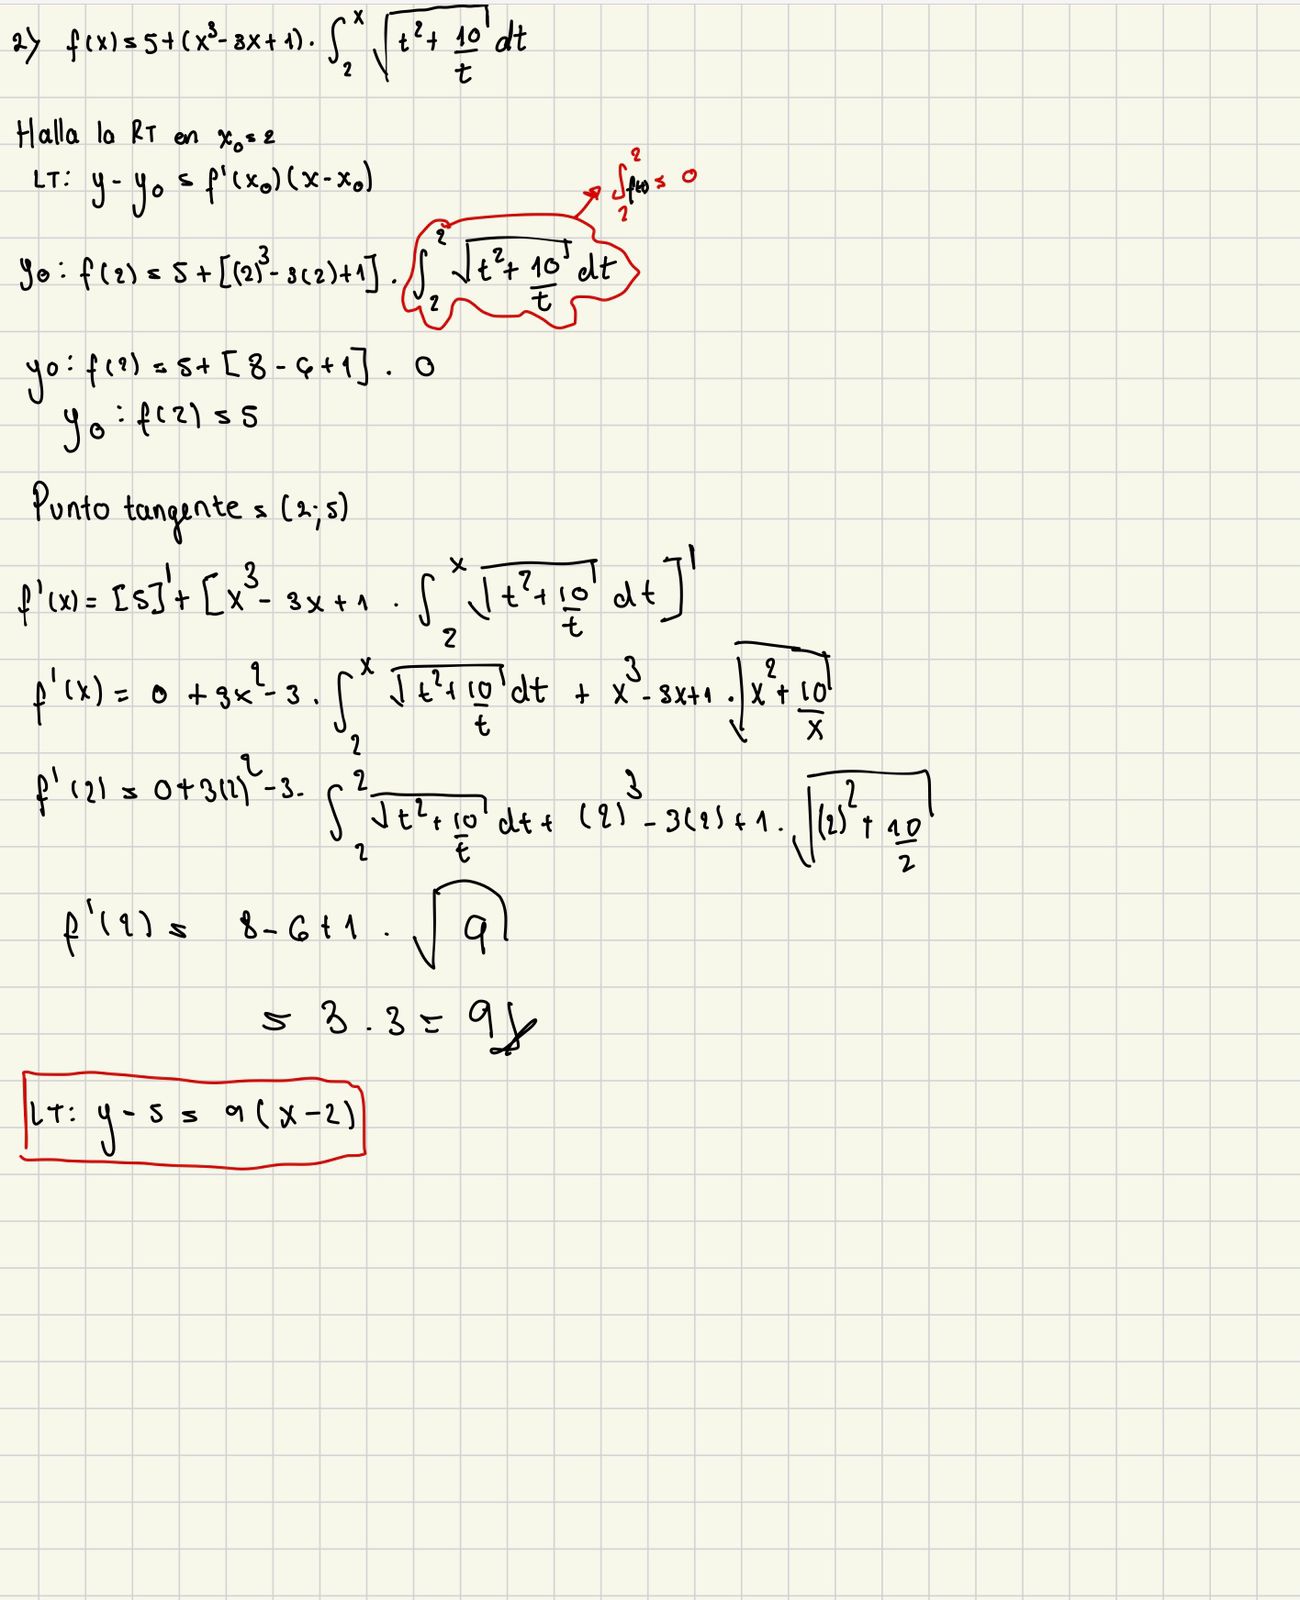 2) f(x) = 5+(x³-3x+1). ∫₂ˣ √(t²+10/t) dt
Halla la RT en x₀=2
LT: y-y₀ = f'(x₀)(x-x₀)
∫₂² f(x) = 0
y₀: f(2) = 5+[(2)³-3(2)+1]. ∫₂² √(t²+10/t) dt
y₀: f(2) = 5+[8-6+1]. 0
y₀: f(2) = 5
Punto tangente = (2;5)
f'(x) = [5]'+[x³-3x+1 . ∫₂ˣ √(t²+10/t) dt]'
f'(x) = 0+3x²-3. ∫₂ˣ √(t²+10/t) dt + x³-3x+1. √(x²+10/x)
f'(2) = 0+3(2)²-3. ∫₂² √(t²+10/t) dt + (2)³-3(2)+1. √((2)²+10/2)
f'(2) = 8-6+1 . √9
= 3.3 = 9
LT: y-5 = 9(x-2)